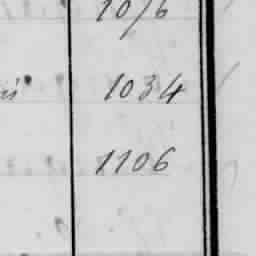 1076
1034
1106